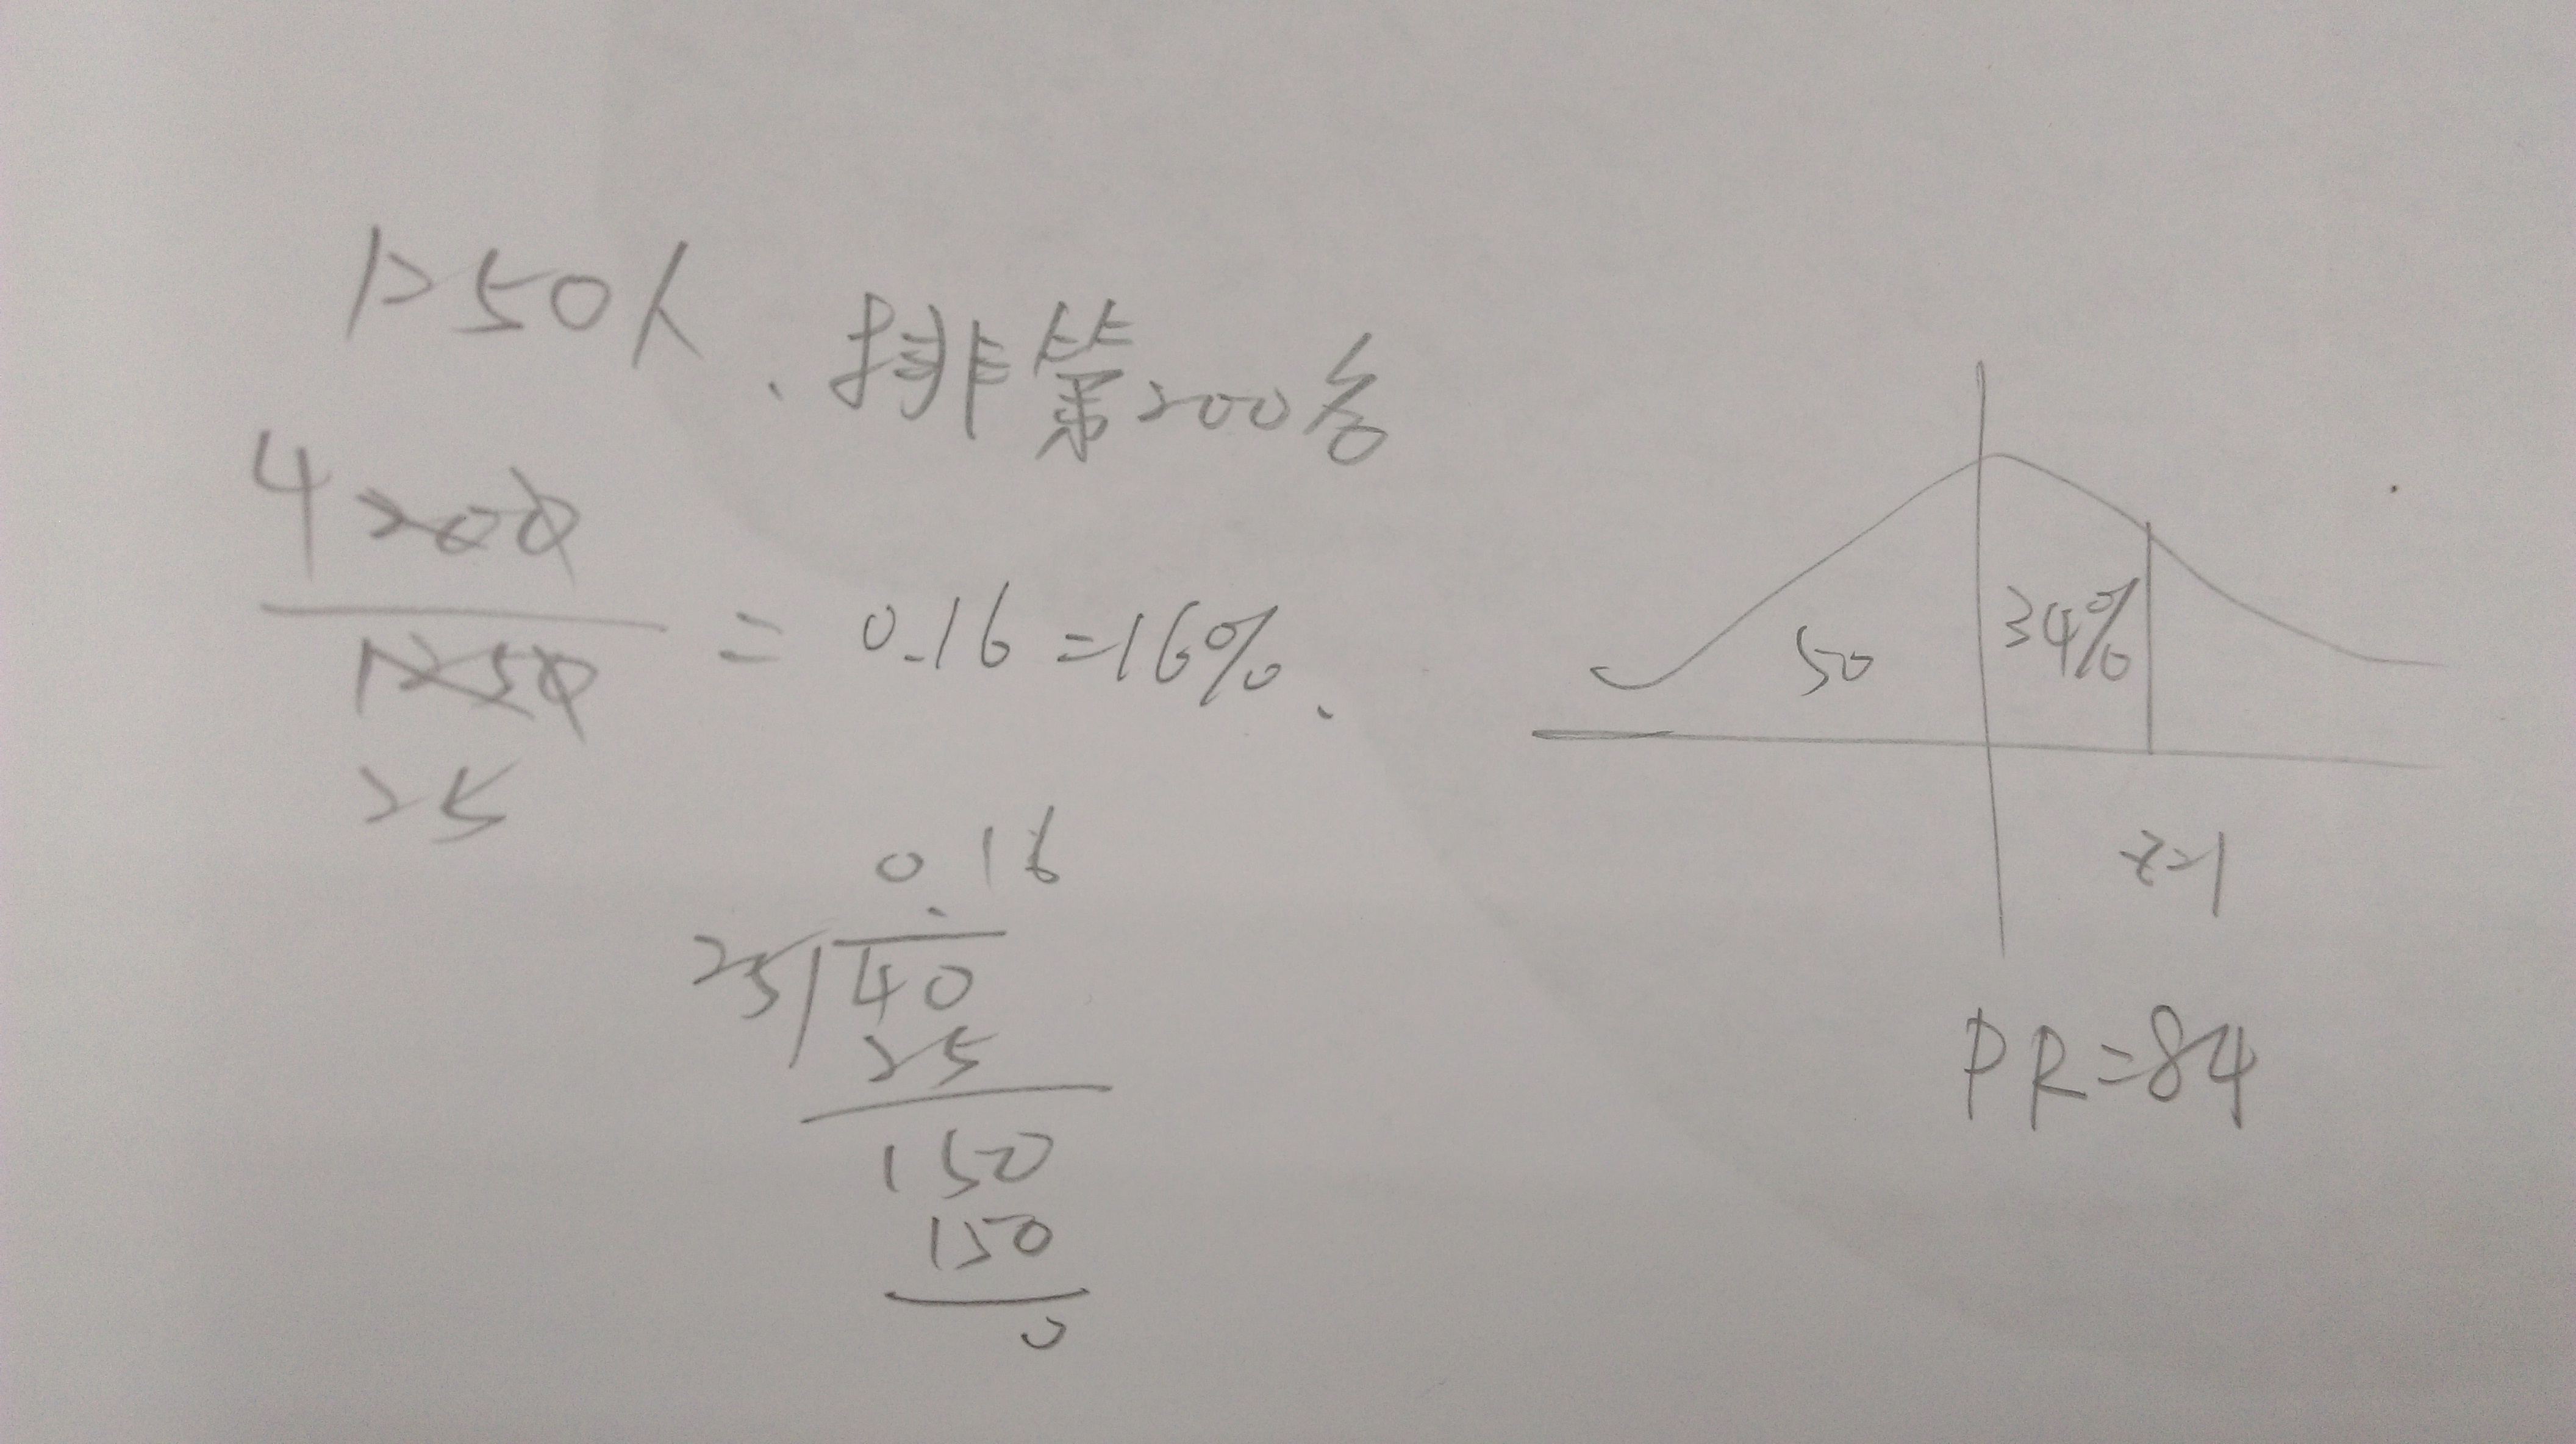 1250人、排第200名
4 200
1250
25
= 0.16 = 16%、
0.16
25 40
25
150
150
0
50 34%
z=1
PR=84